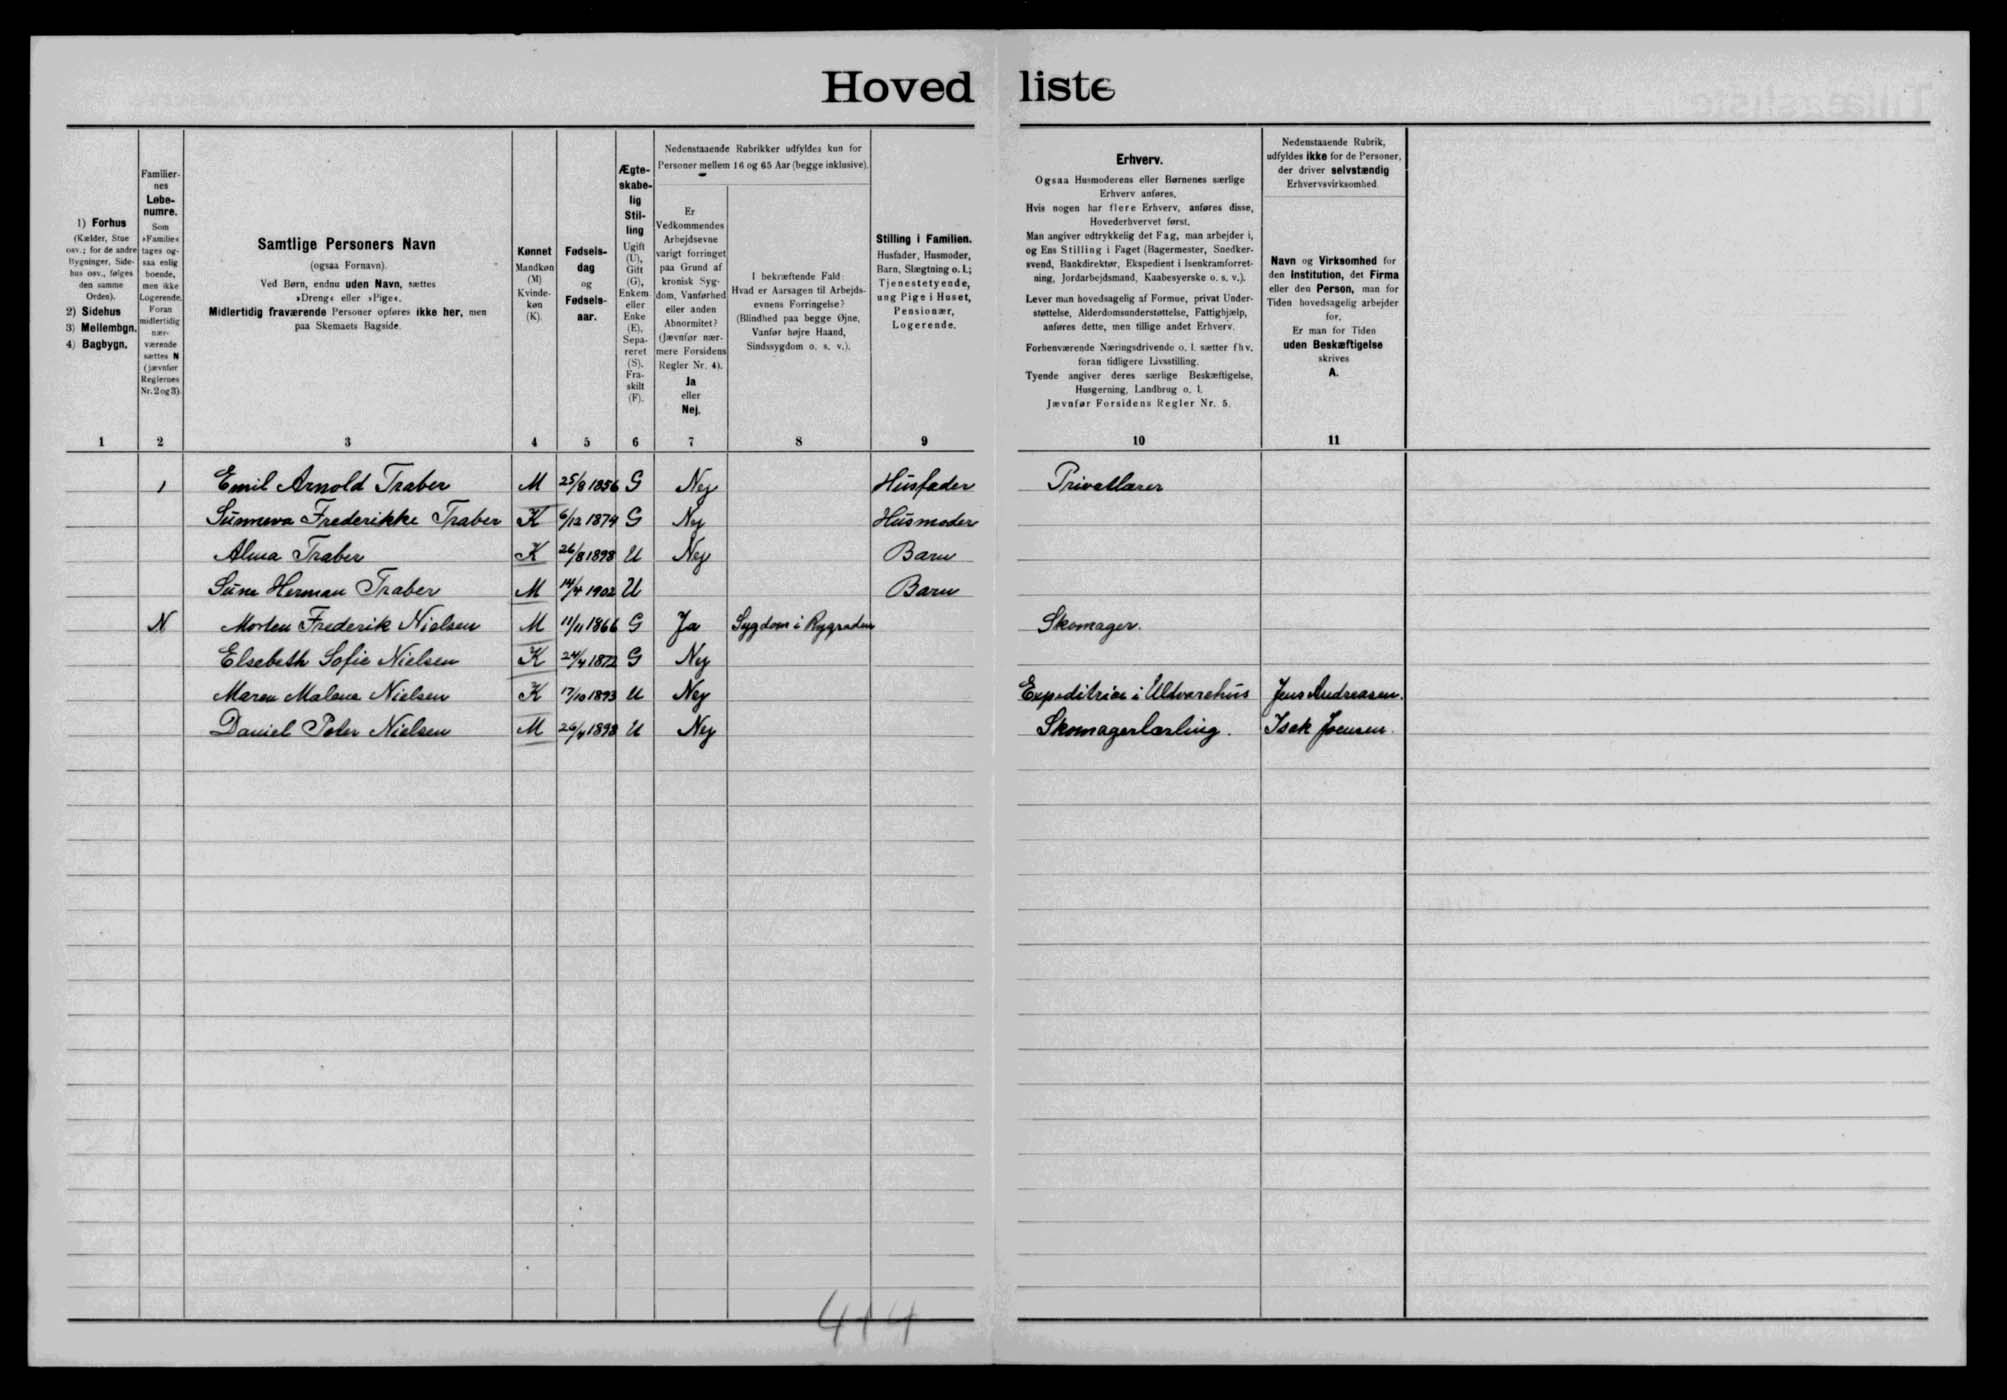 Hovedliste
1) Forhus
(Kælder, Stue
osv.; for de andre
Bygninger, Side-
hus osv., følges
den samme
Orden).
2) Sidehus
3) Mellembgn.
4) Bagbygn.
Familier-
nes
Løbe-
numre.
Som
»Familie«
tages og-
saa enlig
boende,
men ikke
Logerende.
Foran
midlertidig
nær-
værende
sættes N
(jævnfør
Reglernes
Nr. 2 og 3).
Samtlige Personers Navn
(ogsaa Fornavn).
Ved Børn, endnu uden Navn, sættes
»Dreng« eller »Pige«.
Midlertidig fraværende Personer opføres ikke her, men
paa Skemaets Bagside.
Kønnet
Mandkøn
(M)
Kvinde-
køn
(K).
Fødsels-
dag
og
Fødsels-
aar.
Ægte-
skabe-
lig
Stil-
ling
Ugift
(U),
Gift
(G),
Enkem.
eller
Enke
(E),
Sepa-
reret
(S),
Fra-
skilt
(F).
Nedenstaaende Rubrikker udfyldes kun for
Personer mellem 16 og 65 Aar (begge inklusive).
Er
Vedkommendes
Arbejdsevne
varigt forringet
paa Grund af
kronisk Syg-
dom, Vanførhed
eller anden
Abnormitet?
(Jævnfør nær-
mere Forsidens
Regler Nr. 4).
Ja
eller
Nej.
I bekræftende Fald:
Hvad er Aarsagen til Arbejds-
evnens Forringelse?
(Blindhed paa begge Øjne,
Vanfør højre Haand,
Sindssygdom o. s. v.).
Stilling i Familien.
Husfader, Husmoder,
Barn, Slægtning o. l.;
Tjenestetyende,
ung Pige i Huset,
Pensionær,
Logerende.
Erhverv.
Ogsaa Husmoderens eller Børnenes særlige
Erhverv anføres.
Hvis nogen har flere Erhverv, anføres disse,
Hovederhvervet først.
Man angiver udtrykkelig det Fag, man arbejder i,
og Ens Stilling i Faget (Bagermester, Snedker-
svend, Bankdirektør, Ekspedient i Isenkramforret-
ning, Jordarbejdsmand, Kaabesyerske o. s. v.).
Lever man hovedsagelig af Formue, privat Under-
støttelse, Alderdomsunderstøttelse, Fattighjælp,
anføres dette, men tillige andet Erhverv.
Forhenværende Næringsdrivende o. l. sætter fhv.
foran tidligere Livsstilling.
Tyende angiver deres særlige Beskæftigelse,
Husgerning, Landbrug o. l.
Jævnfør Forsidens Regler Nr. 5.
Nedenstaaende Rubrik,
udfyldes ikke for de Personer,
der driver selvstændig
Erhvervsvirksomhed.
Navn og Virksomhed for
den Institution, det Firma
eller den Person, man for
Tiden hovedsagelig arbejder
for.
Er man for Tiden
uden Beskæftigelse
skrives
A.
1 2 3 4 5 6 7 8 9 10 11
1 Emil Arnold Traber M 25/8 1856 G Nej Husfader Privatlærer
Sunneva Frederikke Traber K 6/12 1874 G Nej Husmoder
Alma Traber K 26/8 1898 U Nej Barn
Sune Herman Traber M 14/4 1902 U Barn
N Morten Frederik Nielsen M 11/11 1866 G Ja Sygdom i Rygraden Skomager.
Elsebeth Sofie Nielsen K 24/4 1872 G Nej
Maren Malene Nielsen K 17/10 1893 U Nej Expeditrice i Uldvarehus Jens Andreasen.
Daniel Peter Nielsen M 26/4 1898 U Nej Skomagerlærling. Isak Joensen.
414